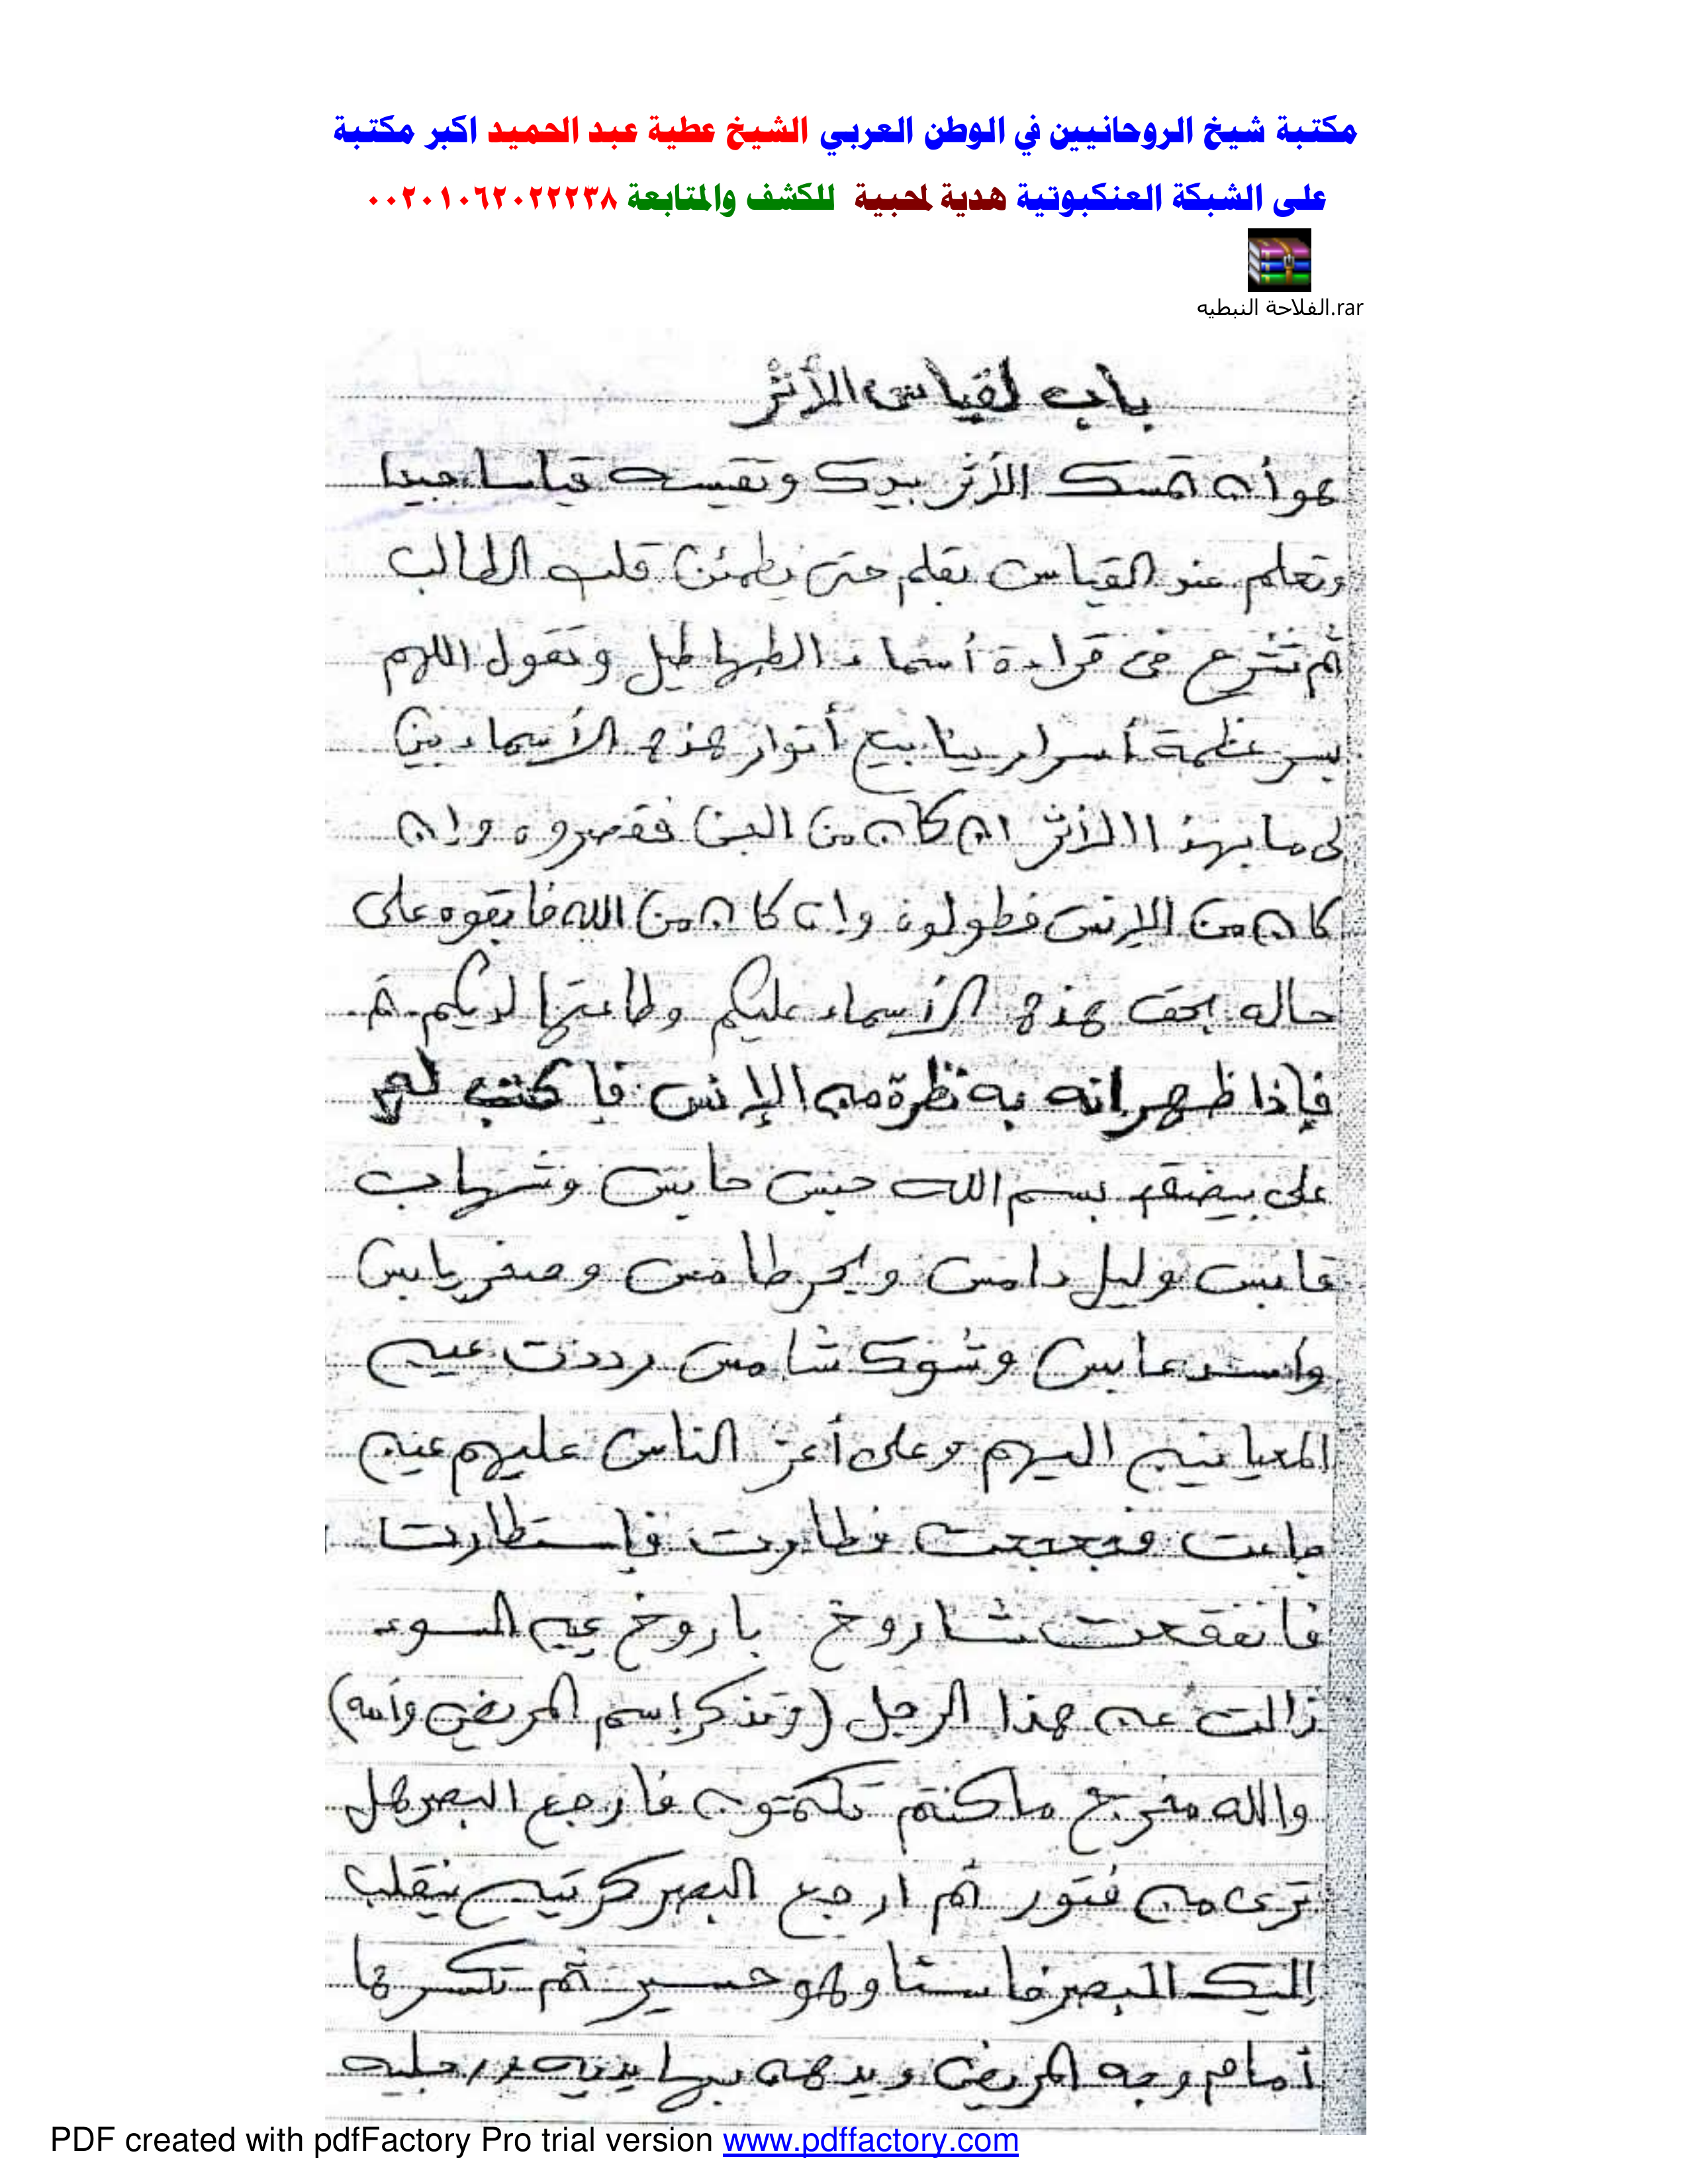 مكتبة شيخ الروحانيين في الوطن العربي الشيخ عطية عبد الحميد اكبر مكتبة
على الشبكة العنكبوتية هدية لمحبية للكشف والمتابعة ٠٠٢٠١٠٦٢٠٢٢٢٣٨
الفلاحة النبطيه.rar
باب لقياس الأثر
هو أن تمسك الأثر بيدك وتقيسه قياسا جيدا
وتعلم عند القياس بقلم حتى يطمئن قلب الطالب
ثم تشرع فى قراءة أسماء الطهاطيل وتقول اللهم
بسر عظمة أسرار ينابيع أنوار هذه الأسماء بين
لى ما بهذا الأثر ان كان من الجن فقصروه وإن
كان من الإنس فطولوه وإن كان من الله فابقوه على
حاله بحق هذه الأسماء عليكم وطاعتها لديكم تم
فإذا ظهر انه به نظرة من الإنس فا كتب له
على بيضة بسم الله حبس حابس وشهاب
قابس وليل دامس وبحر طامس وصخر يابس
واسد عابس وشوك شامس رددت عين
المعيانين اليهم وعلى أعز الناس عليهم عين
جاءت فطارت فإستطارت
شاروخ باروخ عين السوء
زالت عن هذا الرجل (وتذكر إسم المريض وأمه)
والله مخرج ما كنتم تكتمون فارجع البصر هل
ترى من فتور ثم ارجع البصر كرتين ينقلب
إليك البصر خاسئا وهو حسير ثم تكسرها
أمام وجه المريض ويدهن بها يديه ورجليه
PDF created with pdfFactory Pro trial version www.pdffactory.com